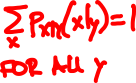 ∑ₓ Pₓ|ᵧ(x|y)=1
FOR ALL y